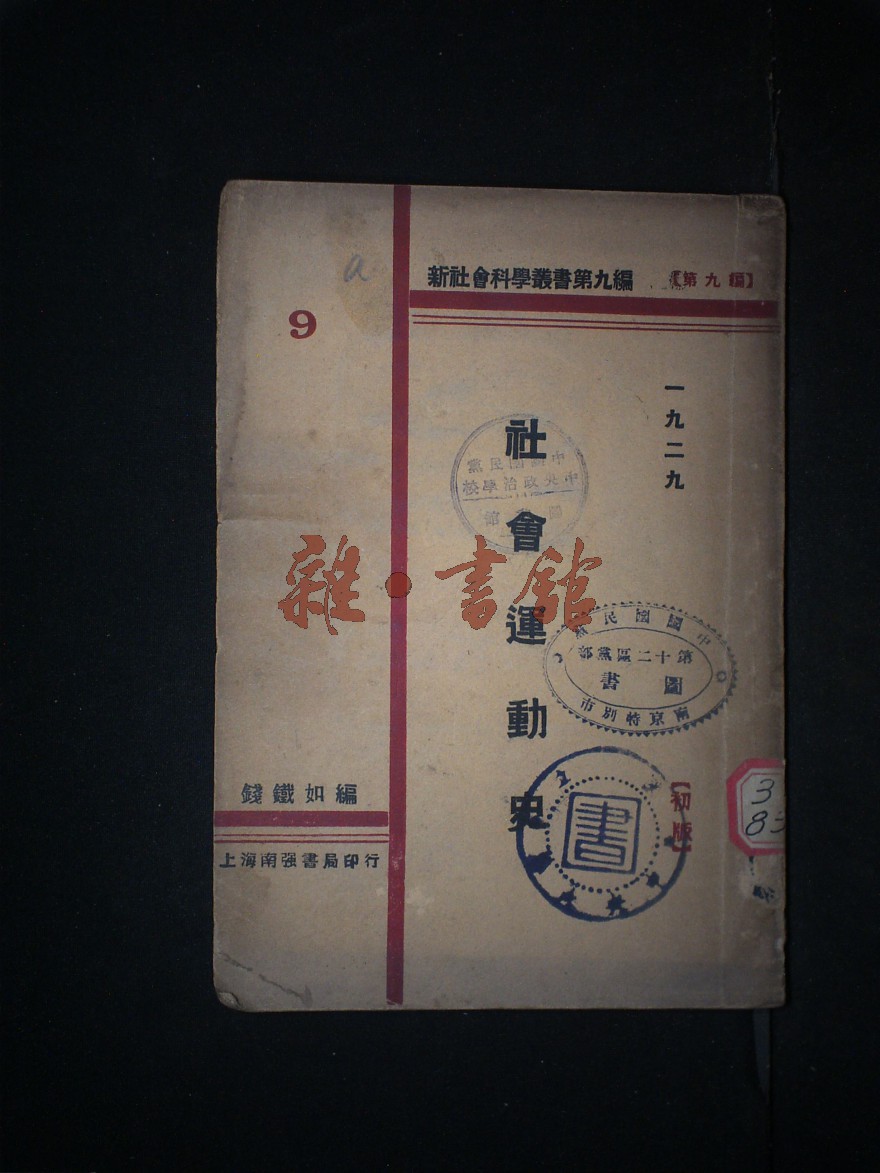 新社會科學叢書第九編
【第九編】
9
a
一九二九
社會運動史
【初版】
錢鐵如編
上海南强書局印行
中國國民黨
中央政治學校
圖書館
中國國民黨
第十二區黨部
圖書
南京特別市
書
雜·書館
3
83